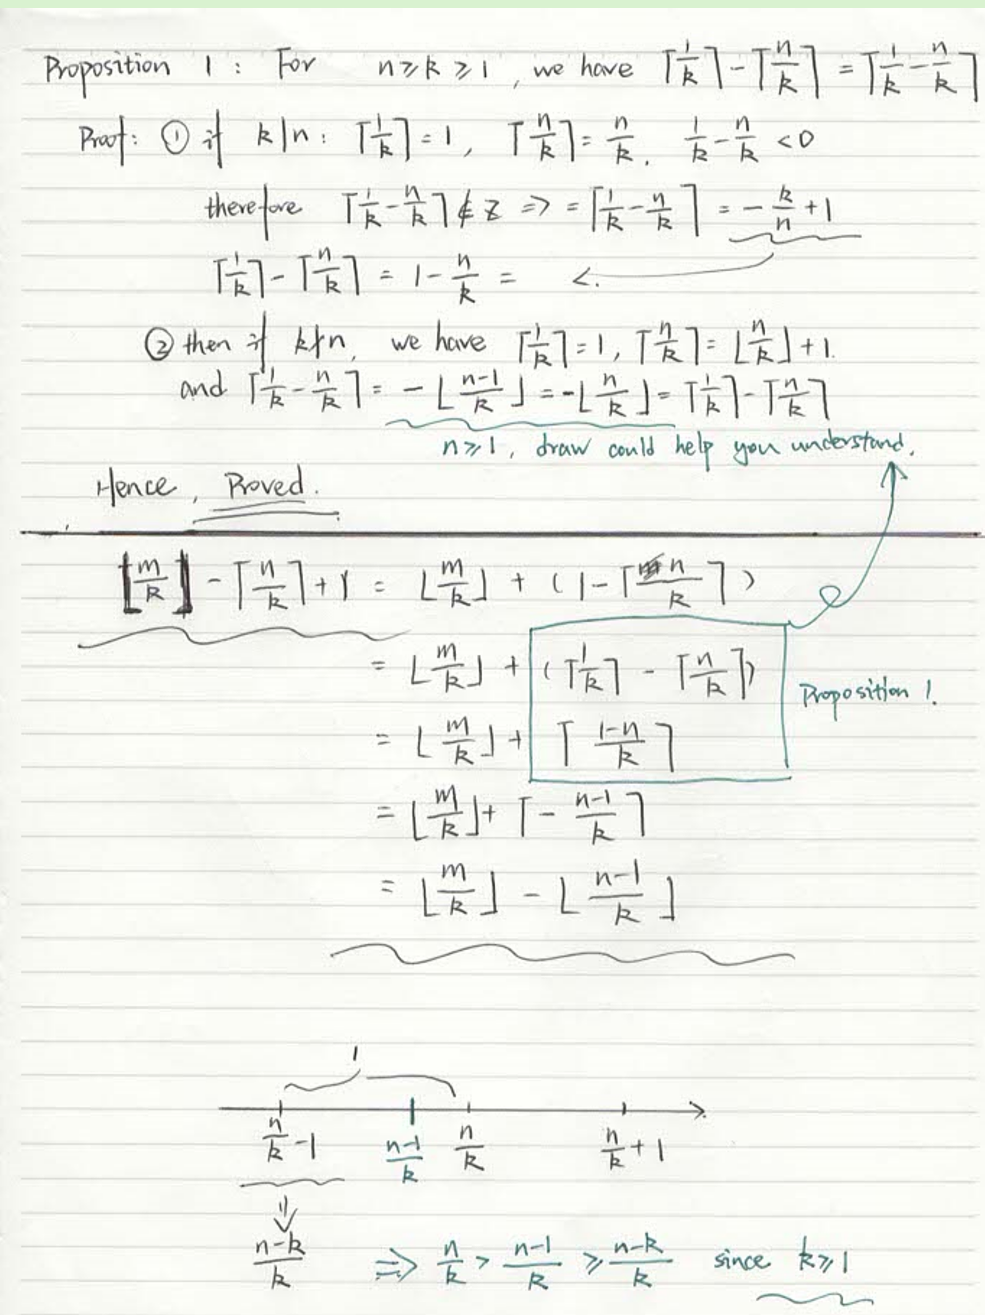 Proposition 1 : For n ≥ k ≥ 1, we have ⌈1/k⌉ - ⌈n/k⌉ = ⌈1/k - n/k⌉
Proof: ① if k|n: ⌈1/k⌉ = 1, ⌈n/k⌉ = n/k, 1/k - n/k < 0
therefore ⌈1/k - n/k⌉ ∉ Z => = ⌈1/k - n/k⌉ = - k/n + 1
⌈1/k⌉ - ⌈n/k⌉ = 1 - n/k = <.
② then if k∤n, we have ⌈1/k⌉ = 1, ⌈n/k⌉ = ⌊n/k⌋ + 1.
and ⌈1/k - n/k⌉ = - ⌊(n-1)/k⌋ = -⌊n/k⌋ = ⌈1/k⌉ - ⌈n/k⌉
n ≥ 1, draw could help you understand.
Hence, Proved.
⌊m/k⌋ - ⌈n/k⌉ + 1 = ⌊m/k⌋ + (1 - ⌈n/k⌉)
= ⌊m/k⌋ + (⌈1/k⌉ - ⌈n/k⌉)
Proposition 1.
= ⌊m/k⌋ + ⌈(1-n)/k⌉
= ⌊m/k⌋ + ⌈- (n-1)/k⌉
= ⌊m/k⌋ - ⌊(n-1)/k⌋
1
n/k - 1 (n-1)/k n/k n/k + 1
⇓
(n-k)/k => n/k > (n-1)/k ≥ (n-k)/k since k ≥ 1